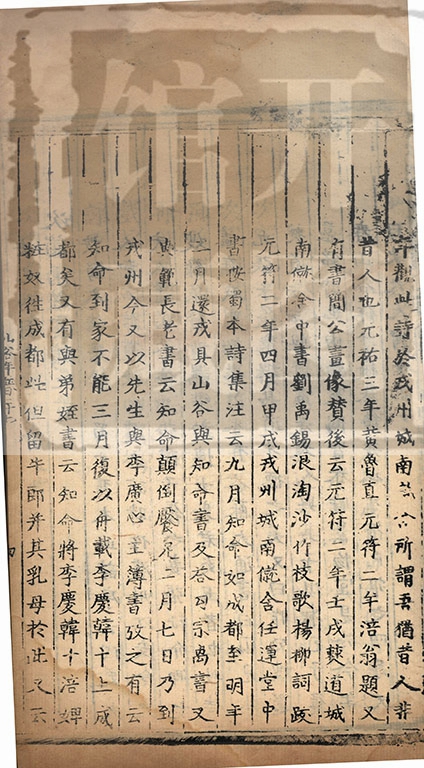 年觀此詩於戎州城南所謂吾猶昔人非
昔人也元祐三年黃魯直元符二年涪翁題又
有書簡公畫像贊後云元符二年壬戌僰道城
南僦舍中書劉禹錫浪淘沙竹枝歌楊柳詞跋
元符二年四月甲戌戎州城南僦舍任運堂中
書按蜀本詩集注云九月知命如成都至明年
二月還戎具山谷與知命書及答李咼書又
與範長老書云知命顛倒二月七日乃到
戎州今又以先生與李廣心主簿書攷之有云
知命到家不能三月復以舟載李慶韓十上成
都矣又有與弟姪書云知命將李慶韓十涪婢
粧奴徃成都此但留牛郎并其乳母於此又云
山谷年譜